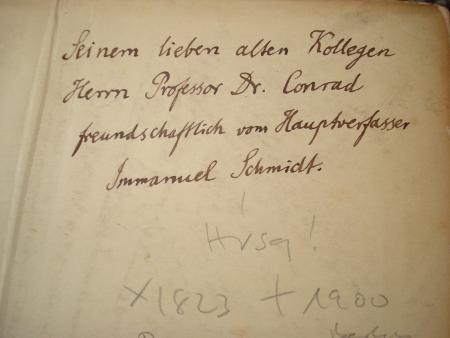 Seinem lieben alten Kollegen
Herrn Professor Dr. Conrad
freundschaftlich vom Hauptverfasser
Immanuel Schmidt.
!
Hrsg!
×1823 +1900